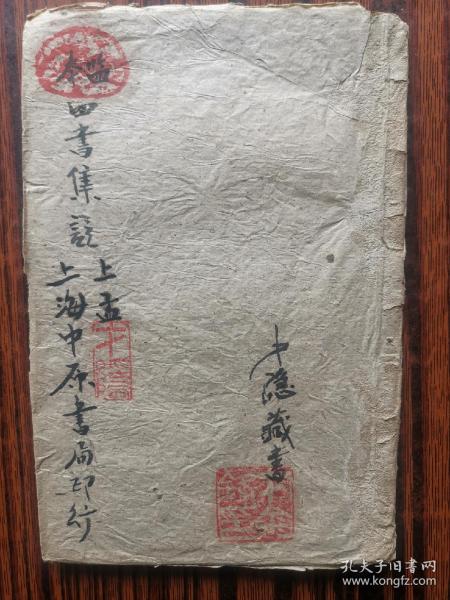 监本
四书集註
上孟
上海中原书局印行
中隐藏書
孔夫子旧书网
www.kongfz.com